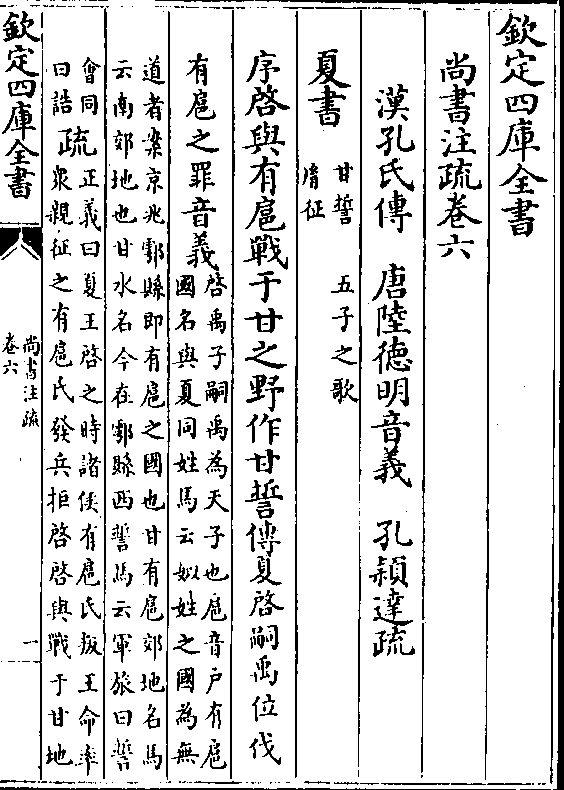 欽定四庫全書
尚書注疏卷六
漢孔氏傳　唐陸德明音義　孔穎達疏
夏書
甘誓　五子之歌
𦙍征
序啓與有扈戰于甘之野作甘誓傳夏啓嗣禹位伐
有扈之罪音義
啓禹子嗣禹為天子也扈音户有扈
國名與夏同姓馬云姒姓之國為無
道者案京兆鄠縣即有扈之國也甘有扈郊地名馬
云南郊地也甘水名今在鄠縣西誓馬云軍旅曰誓
會同
曰誥
疏
正義曰夏王啓之時諸侯有扈氏叛王命率
衆親征之有扈氏發兵拒啓啓與戰于甘地
欽定四庫全書
尚書注疏
卷六
一